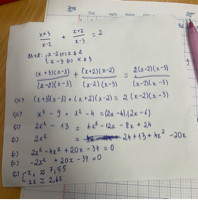 x+3/x-2 + x+2/x-3 = 2
x-2≠0 x≠2
x-3≠0 x≠3
(x+3)(x-3)/(x-2)(x-3) + (x+2)(x-2)/(x-2)(x-3) = 2(x-2)(x-3)/(x-2)(x-3)
(=) (x+3)(x-3) + (x+2)(x-2) = 2(x-2)(x-3)
(=) x² - 9 + x² - 4 = (2x-4)(2x-6)
(=) 2x² - 13 = 4x² - 12x - 8x + 24
(=) 2x² = 24 + 13 + 4x² - 20x
(=) 2x² - 4x² + 20x - 37 = 0
(=) -2x² + 20x - 37 = 0
(=) x₁ ≈ 7,55
x₂ ≈ 2,45